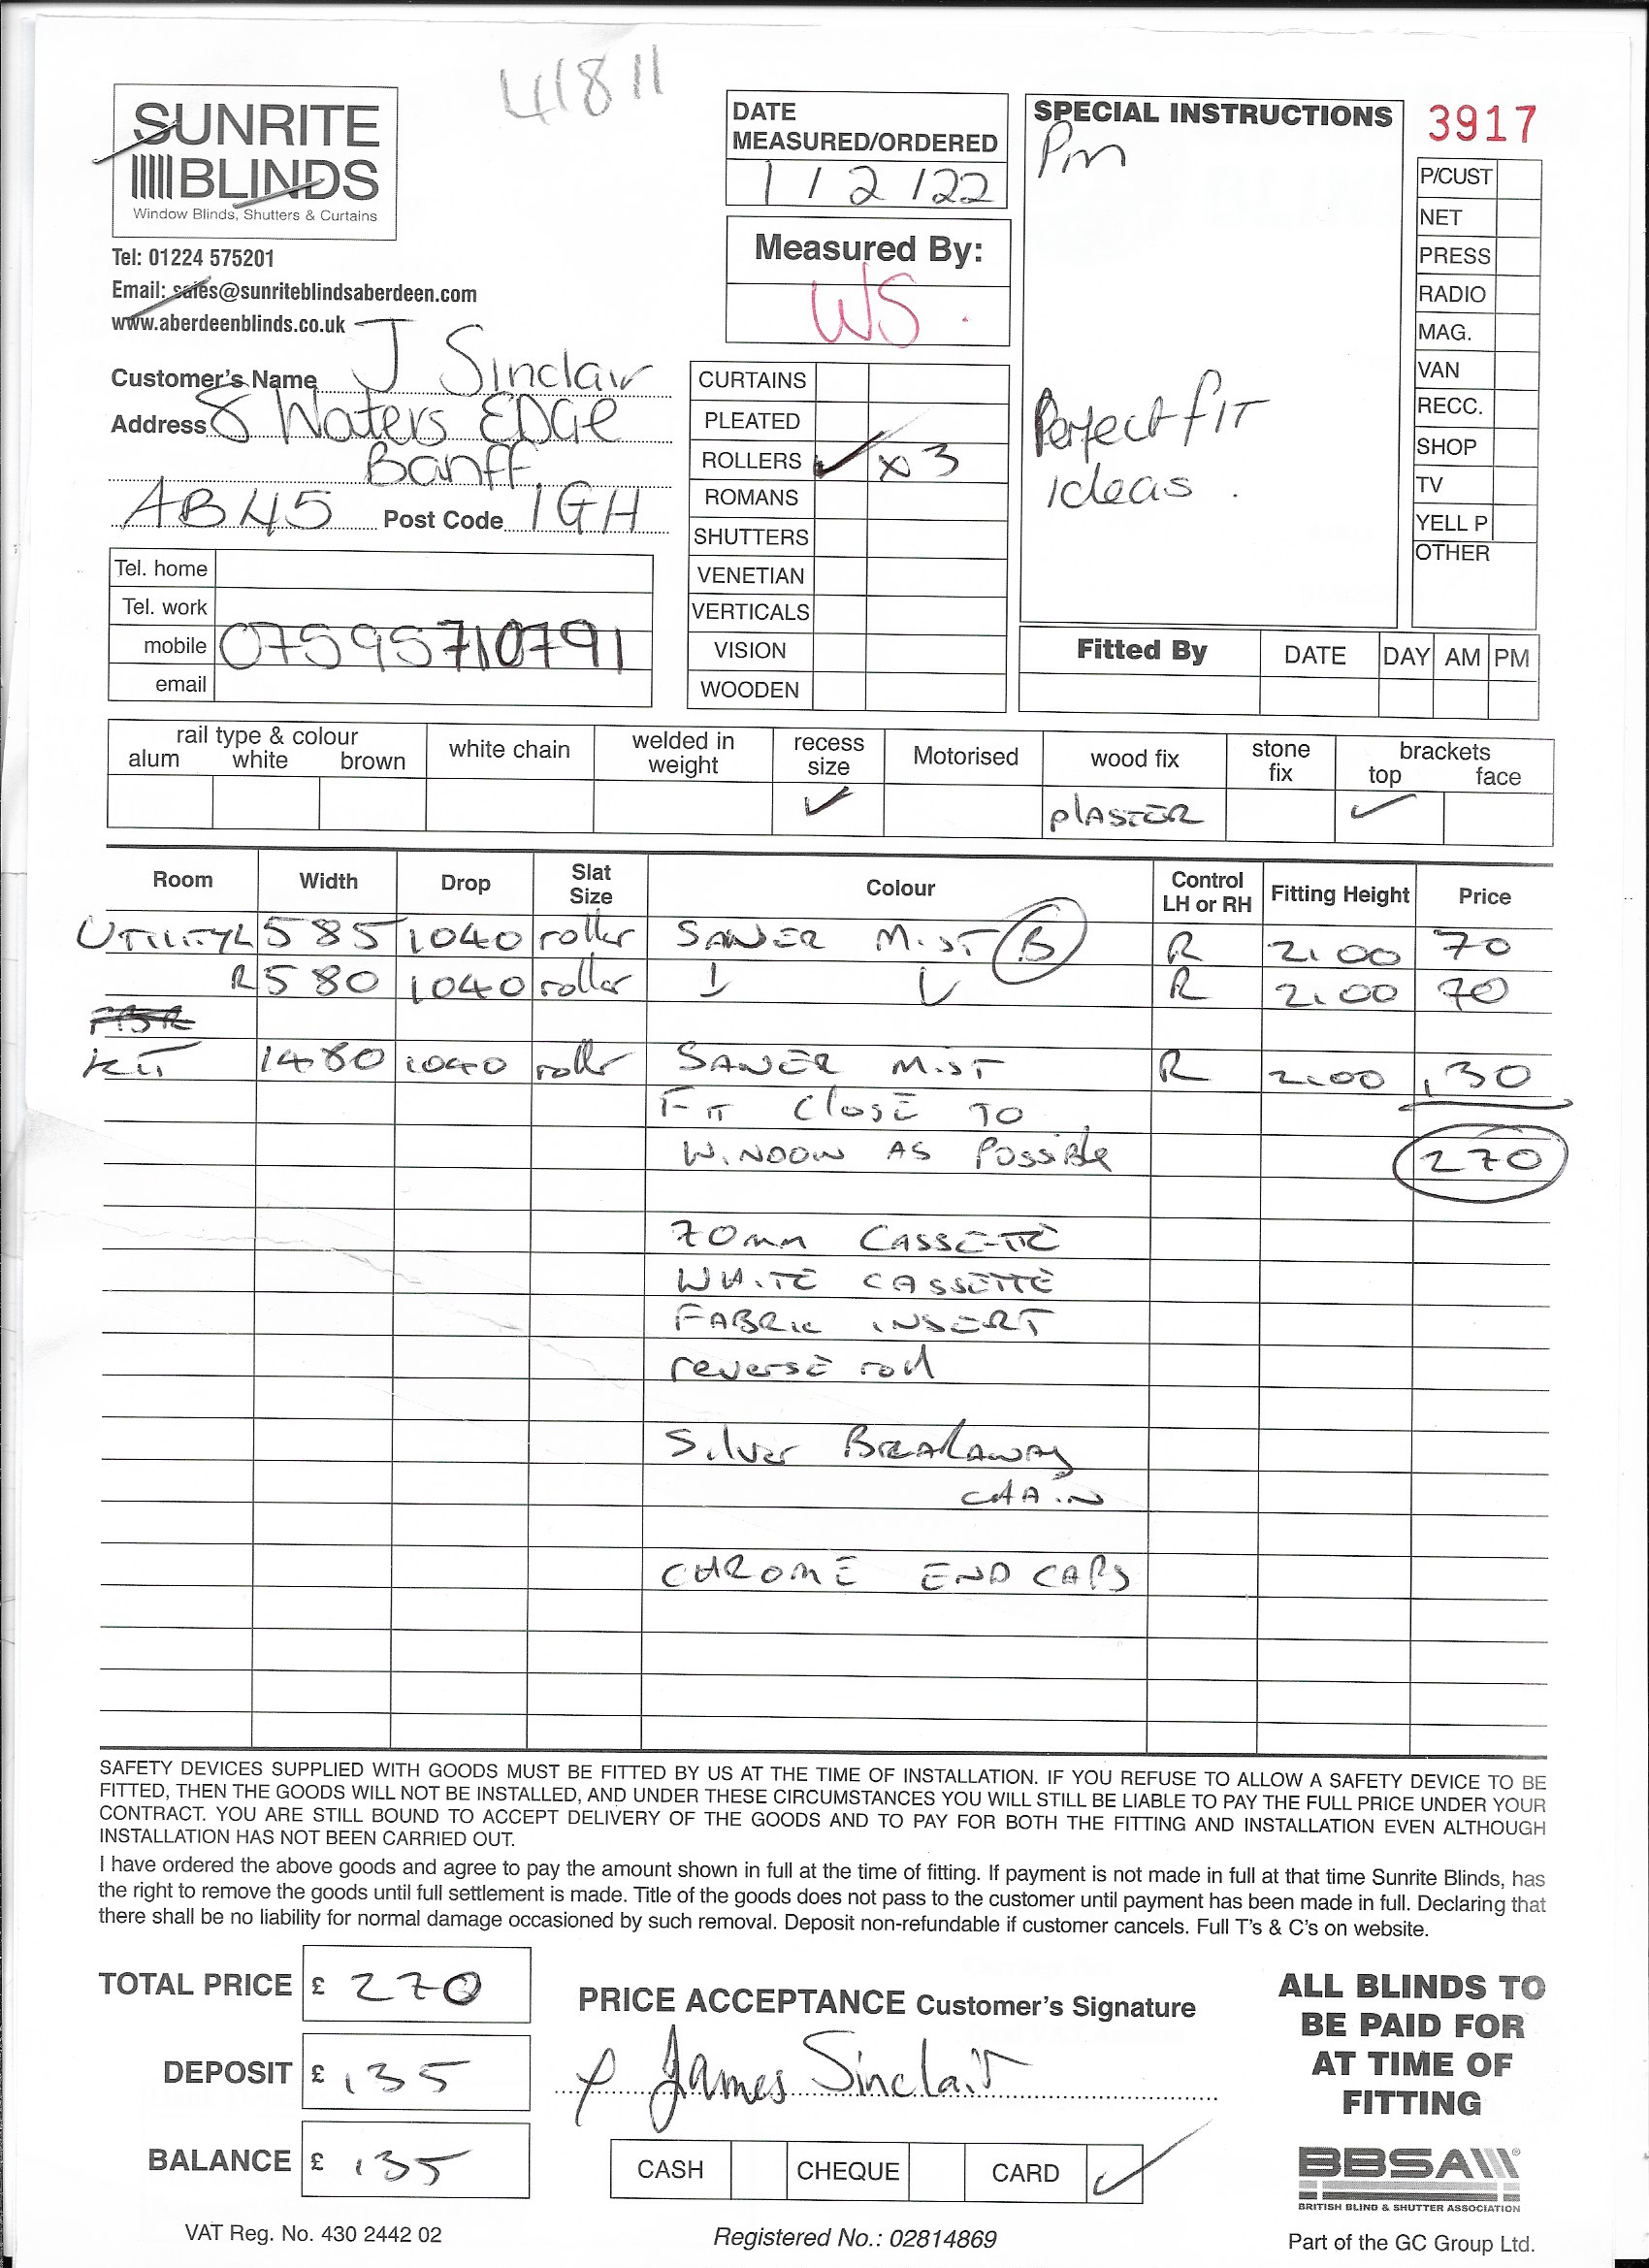 41811
SUNRITE
BLINDS
Window Blinds, Shutters & Curtains
Tel: 01224 575201
Email: sales@sunriteblindsaberdeen.com
www.aberdeenblinds.co.uk
DATE
MEASURED/ORDERED
1 / 2 / 22
Measured By:
WS.
SPECIAL INSTRUCTIONS
Pm
Perfect fIT
ideas.
3917
P/CUST
NET
PRESS
RADIO
MAG.
VAN
RECC.
SHOP
TV
YELL P
OTHER
Customer's Name J Sinclair
Address 8 Waters EDGe
Banff
AB45 Post Code 1GH
Tel. home
Tel. work
mobile 07595710791
email
CURTAINS
PLEATED
ROLLERS ✓ x3
ROMANS
SHUTTERS
VENETIAN
VERTICALS
VISION
WOODEN
Fitted By DATE DAY AM PM
rail type & colour
alum white brown
white chain
welded in
weight
recess
size
✓
Motorised
wood fix
plASTER
stone
fix
brackets
top face
✓
Room Width Drop Slat Size Colour Control LH or RH Fitting Height Price
UTILITY L 585 1040 roller SAWER MIST B R 2.00 70
R 580 1040 roller ↓ ↓ R 2.00 70
KIT 1480 1040 roller SAWER MIST R 2.00 130
FIT ClosE TO
WINDOW AS PossiBle 270
70mm CASSETTE
WHITE CASSETTE
FABRIC INSERT
reversE roll
Silver BREAKAWAY
CHAIN
CHROME END CAPS
SAFETY DEVICES SUPPLIED WITH GOODS MUST BE FITTED BY US AT THE TIME OF INSTALLATION. IF YOU REFUSE TO ALLOW A SAFETY DEVICE TO BE
FITTED, THEN THE GOODS WILL NOT BE INSTALLED, AND UNDER THESE CIRCUMSTANCES YOU WILL STILL BE LIABLE TO PAY THE FULL PRICE UNDER YOUR
CONTRACT. YOU ARE STILL BOUND TO ACCEPT DELIVERY OF THE GOODS AND TO PAY FOR BOTH THE FITTING AND INSTALLATION EVEN ALTHOUGH
INSTALLATION HAS NOT BEEN CARRIED OUT.
I have ordered the above goods and agree to pay the amount shown in full at the time of fitting. If payment is not made in full at that time Sunrite Blinds, has
the right to remove the goods until full settlement is made. Title of the goods does not pass to the customer until payment has been made in full. Declaring that
there shall be no liability for normal damage occasioned by such removal. Deposit non-refundable if customer cancels. Full T's & C's on website.
TOTAL PRICE £ 270
DEPOSIT £ 135
BALANCE £ 135
PRICE ACCEPTANCE Customer's Signature
x James Sinclair
CASH CHEQUE CARD ✓
ALL BLINDS TO
BE PAID FOR
AT TIME OF
FITTING
BBSA
BRITISH BLIND & SHUTTER ASSOCIATION
VAT Reg. No. 430 2442 02
Registered No.: 02814869
Part of the GC Group Ltd.